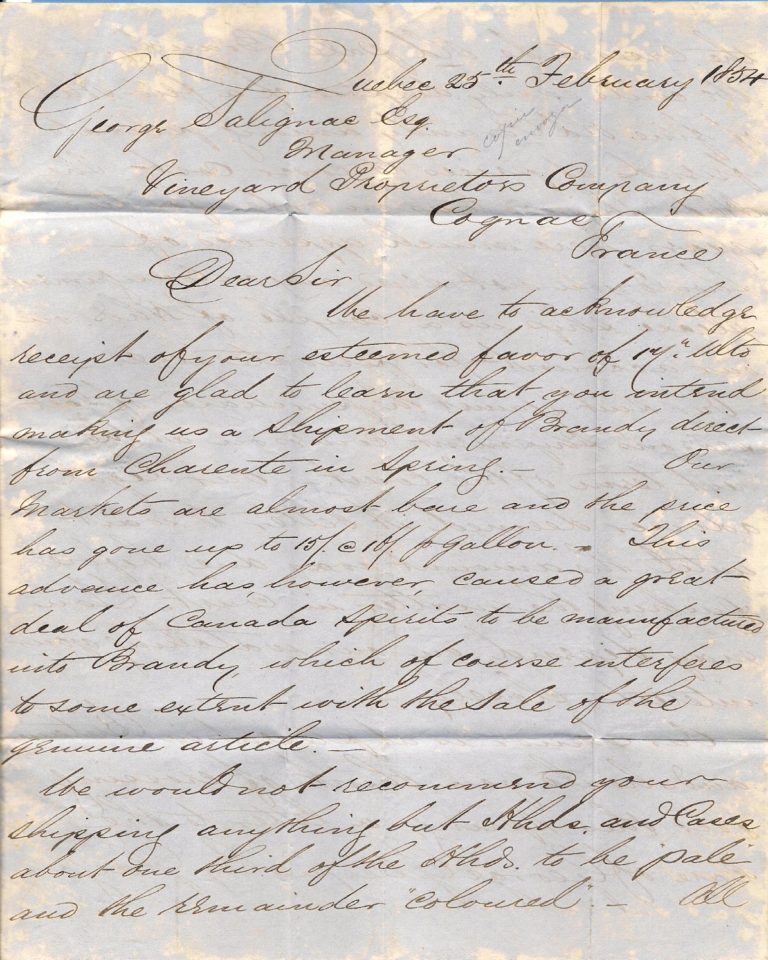 Quebec 25th. February 1854
George Salignac Esq.
Manager
Vineyard Proprietors Company
Cognac
France
Dear Sir
We have to acknowledge
receipt of your esteemed favor of Ulto.
and are glad to learn that you intend
making us a Shipment of Brandy direct
from Charente in Spring. — Our
Markets are almost bare and the price
has gone up to 15/. @ 16/. p gallon. — This
advance has, however, caused a great
deal of Canada Spirits to be manufactured
into Brandy, which of course interferes
to some extent with the Sale of the
genuine article. —
We would not recommend your
shipping anything but Hhds. and Cases
about one third of the Hhds. to be "pale"
and the remainder "coloured". — All